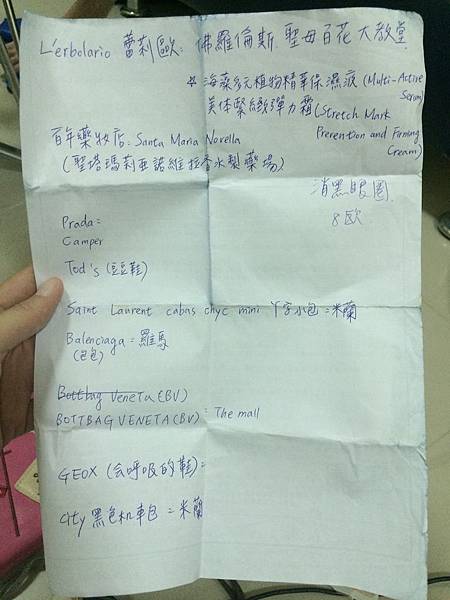 L'erbolario 蕾莉歐: 佛羅倫斯.聖母百花大教堂
☆ 海藻多元植物精華保濕液 (Multi-Active Serum)
美体緊緻彈力霜 (Stretch Mark Prerention and Firming Cream)
百年藥妝店: Santa Maria Norella
(聖塔瑪莉亞諾維拉香水製藥場)
消黑眼圈
8歐
Prada:
Camper
Tod's (豆豆鞋)
Saint Laurent cabas chyc mini 丫字小包 = 米蘭
Balenciaga = 羅馬
(包包)
Bottbag VeneTa (BV)
BOTTBAG VENETA (BV) : The mall
GEOX (会呼吸的鞋) =
city 黑色机車包 = 米蘭